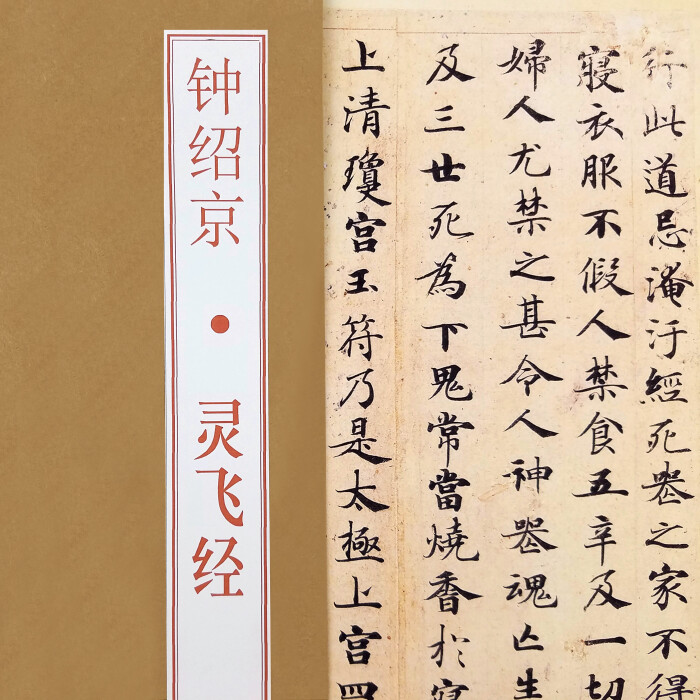 钟绍京·灵飞经
行此道忌淹汙經死䘮之家不得
寝衣服不假人禁食五辛及一切
婦人尤禁之甚令人神䘮魂亡生
及三世死為下鬼常當燒香於寝
上清瓊宫玉符乃是太極上宫四